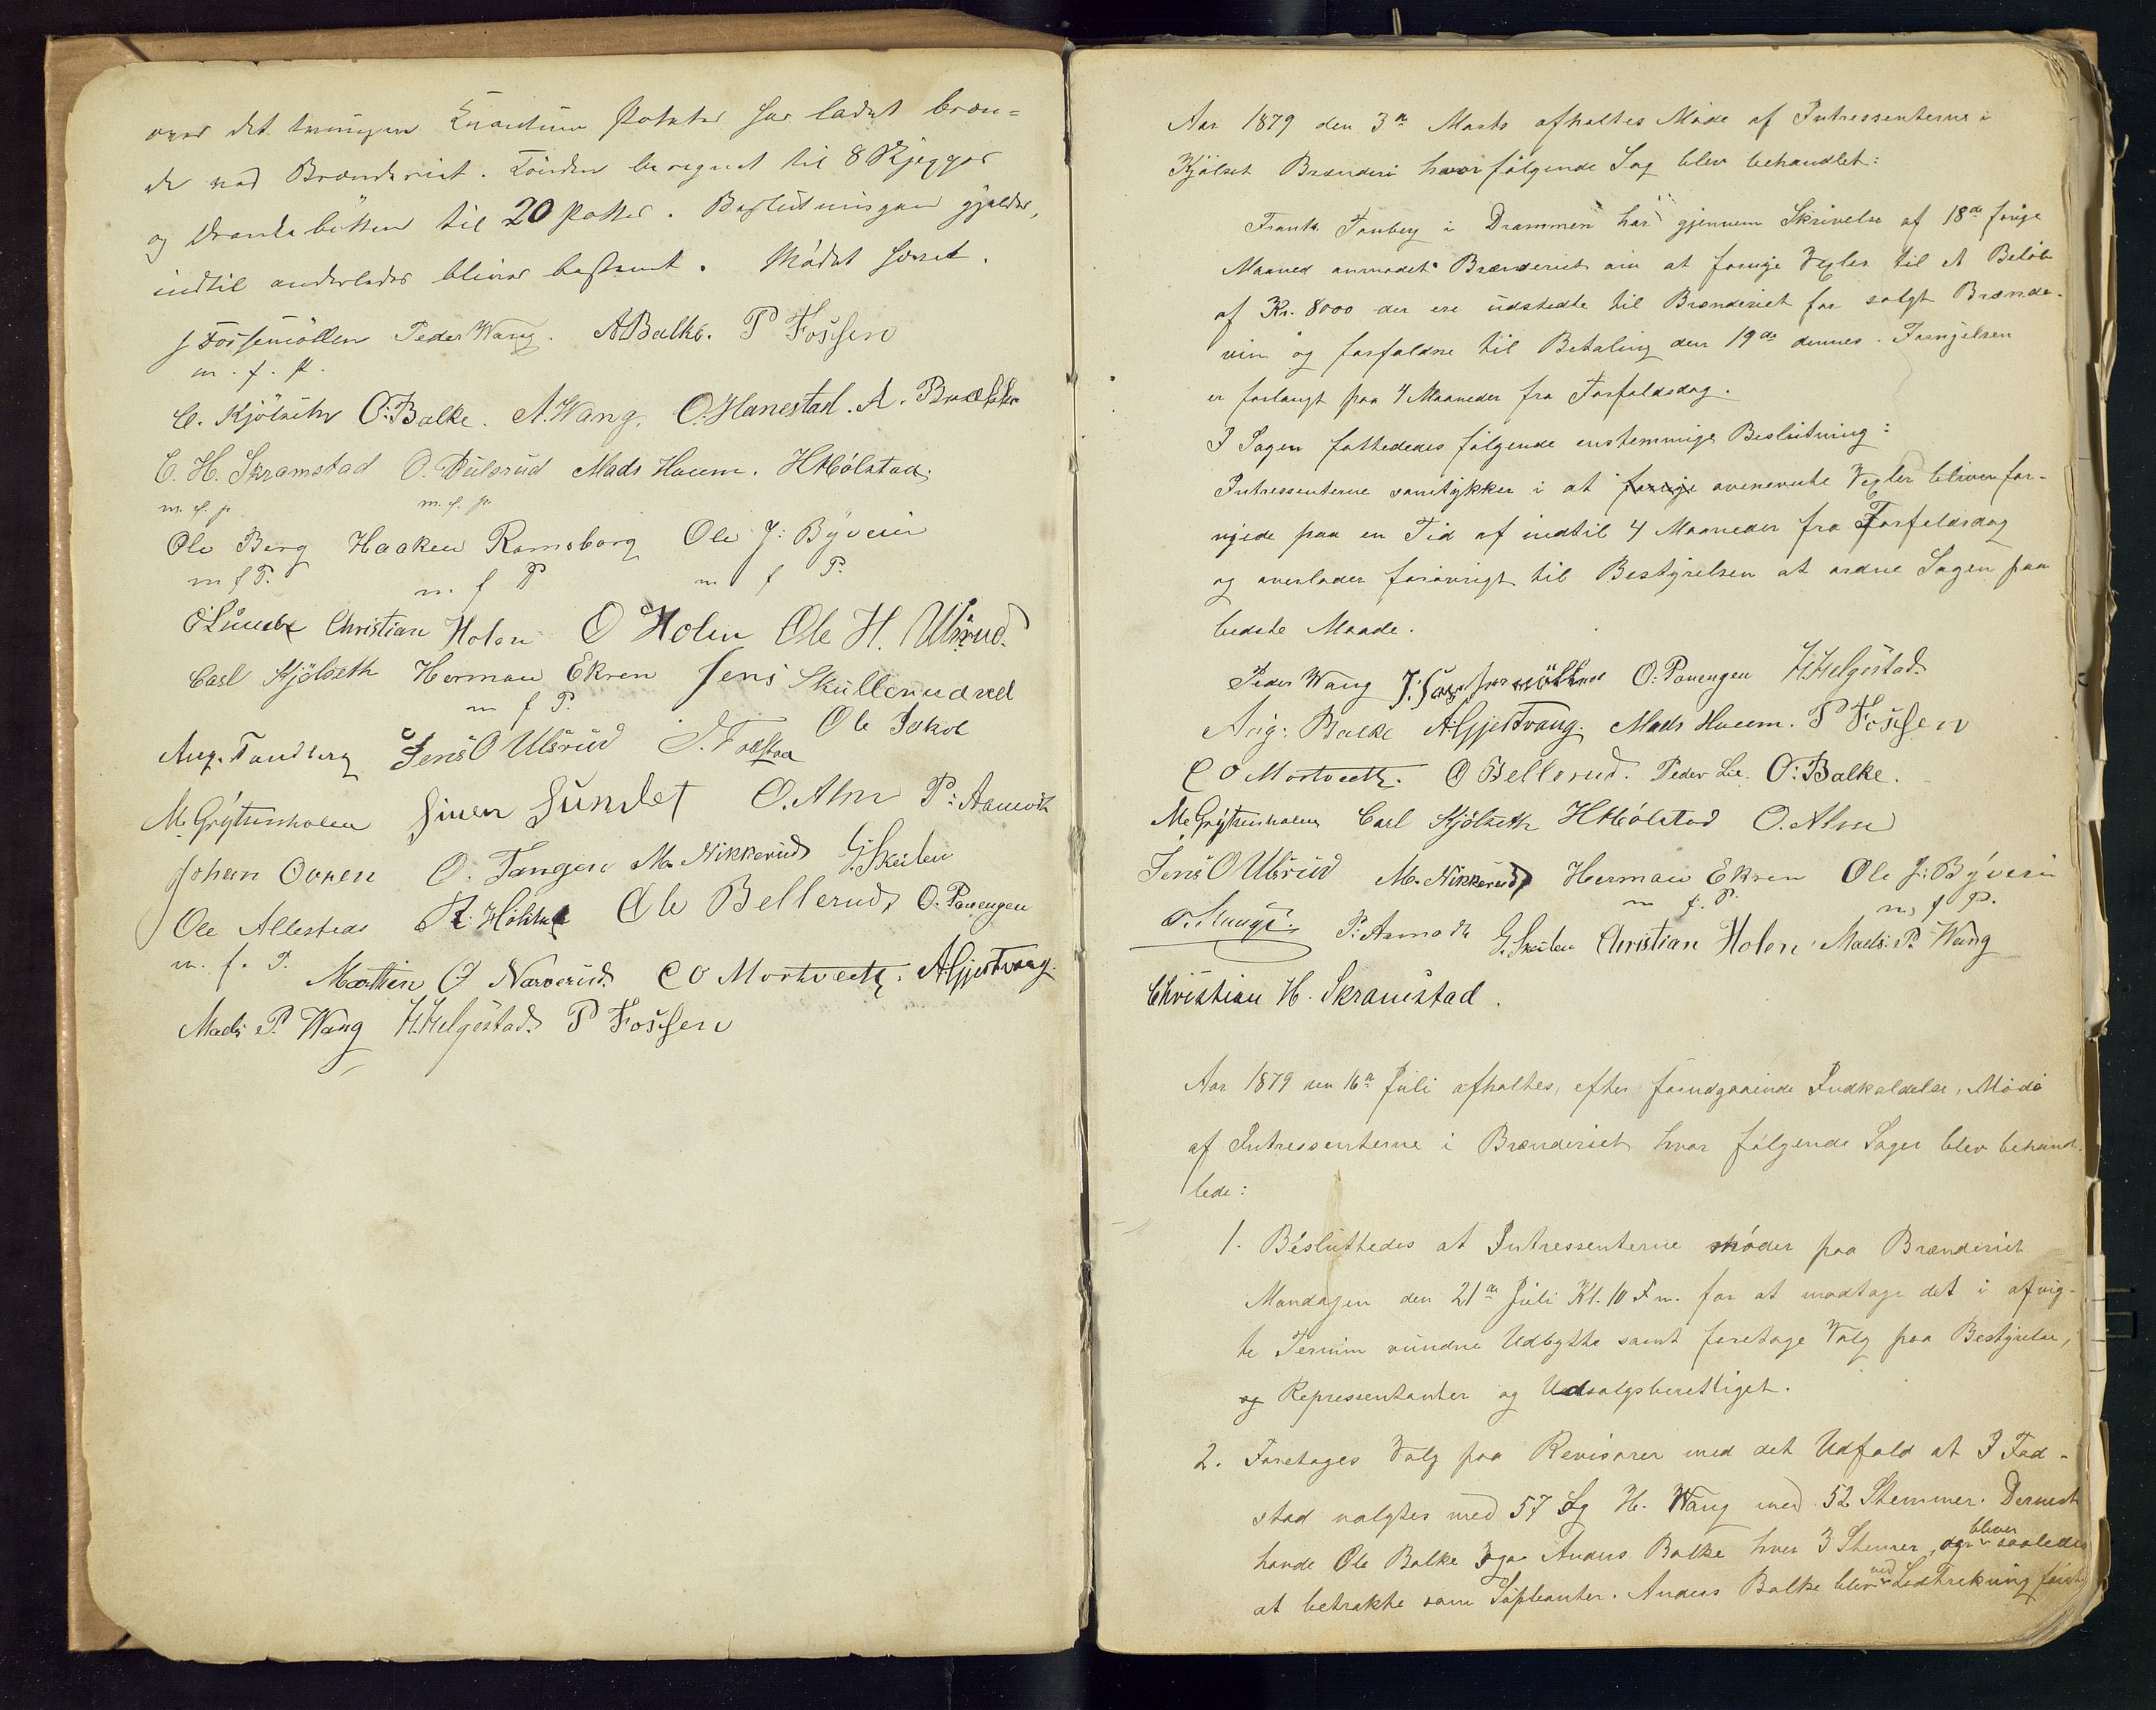 over det tvungne Qvantum Poteter har ladet bræn-
de ved Brænderiet. Tönden beregnet til 8 Skjepper
og Drankebötten til 20 Potter. Beslutningen gjelder,
indtil anderledes bliver bestemt. Mödet hævet.
J Fossemöllen Peder Wang. ABalke. P Fossen
m. f. P.
C. Kjölseth O: Balke. A. Wang. O. Hanestad. A. Brække
C. H. Skramstad O. Dulsrud Mads Hveem. H Mölstad.
m. f. p. m. f. p.
Ole Berg Haaken Ramsborg Ole J: Byvein
m f P. m. f P m f P.
O Lunde Christian Holen O Holen Ole H. Ulsrud.
Carl Kjölseth Herman Ekren Jens Skullerudved
m f P.
Aug. Tandberg Jens O Ulsrud Ole Jakob
M. Grÿtensholen Siven Sundet O. Alm P: Aamodt
Johan Ovren O. Tangen M. Nikkerud G. Skeilen
Ole Allestads Ole Bellerud O. Pavengen
m. f. P. Martin O Narverud. C O Mortvedt. AGjestvang.
Mads P. Wang H. Helgestad. P Fossen
Aar 1879 den 3die Marts afholtes Möde af Intressenterne i
Kjölset Brænderi hvor fölgende Sag blev behandlet:
Frants Fauberg i Drammen har gjennem Skrivelse af 18de forige
Maaned anmodet Brænderiet om at fornÿe Vexler til et Belöb
af Kr. 8000 der ere udstedte til Brænderiet for solgt Brænde-
vin og forfaldne til Betaling den 19de dennes. Fornÿelsen
er forlangt paa 4 Maaneder fra Forfaldsdag.
I Sagen fattedes fölgende enstemmige Beslutning:
Intressenterne samtykker i at fornÿe ovenevnte Vexler bliver for-
nÿede paa en Tid af indtil 4 Maaneder fra Forfaldsdag
og overlader forövrigt til Bestyrelsen at ordne Sagen paa
bedste Maade.
Peder Wang J. Fossemöllen O. Pavengen H. Helgestad.
Aug: Balke AGjestvang. Mads Hveem. P Fossen
C O Mortvedt. O Bellerud. Peder Lie. O: Balke.
M. Grÿtensholen Carl Kjölseth H Mölstad O. Alm
Jens O Ulsrud M. Nikkerud Herman Ekren Ole J: Byvein
m f. P. m f P.
P: Aamodt G. Skeilen Christian Holen Mads: P. Wang
Christian H. Skramstad.
Aar 1879 den 16de Juli afholtes, efter forudgaaende Indkaldelse, Möde
af Intressenterne i Brænderiet hvor fölgende Sager blev behand-
lede:
1. Besluttedes at Intressenterne möder paa Brænderiet
Mandagen den 21de Juli Kl. 10 Fm. for at modtage det i afvig-
te Termin vundne Udbytte samt foretage Valg paa Bestyrelse,
og Repressentanter og Udsalgsberettiget.
2. Foretoges Valg paa Revisorer med det Udfald at I Fod-
stad valgtes med 57 og H. Wang med 52 Stemmer. Dernest
havde Ole Balke og Anders Balke hver 3 Stemmer, og bliver saaledes
at betrakte som Supleanter. Anders Balke blev ved Lodtrekning först